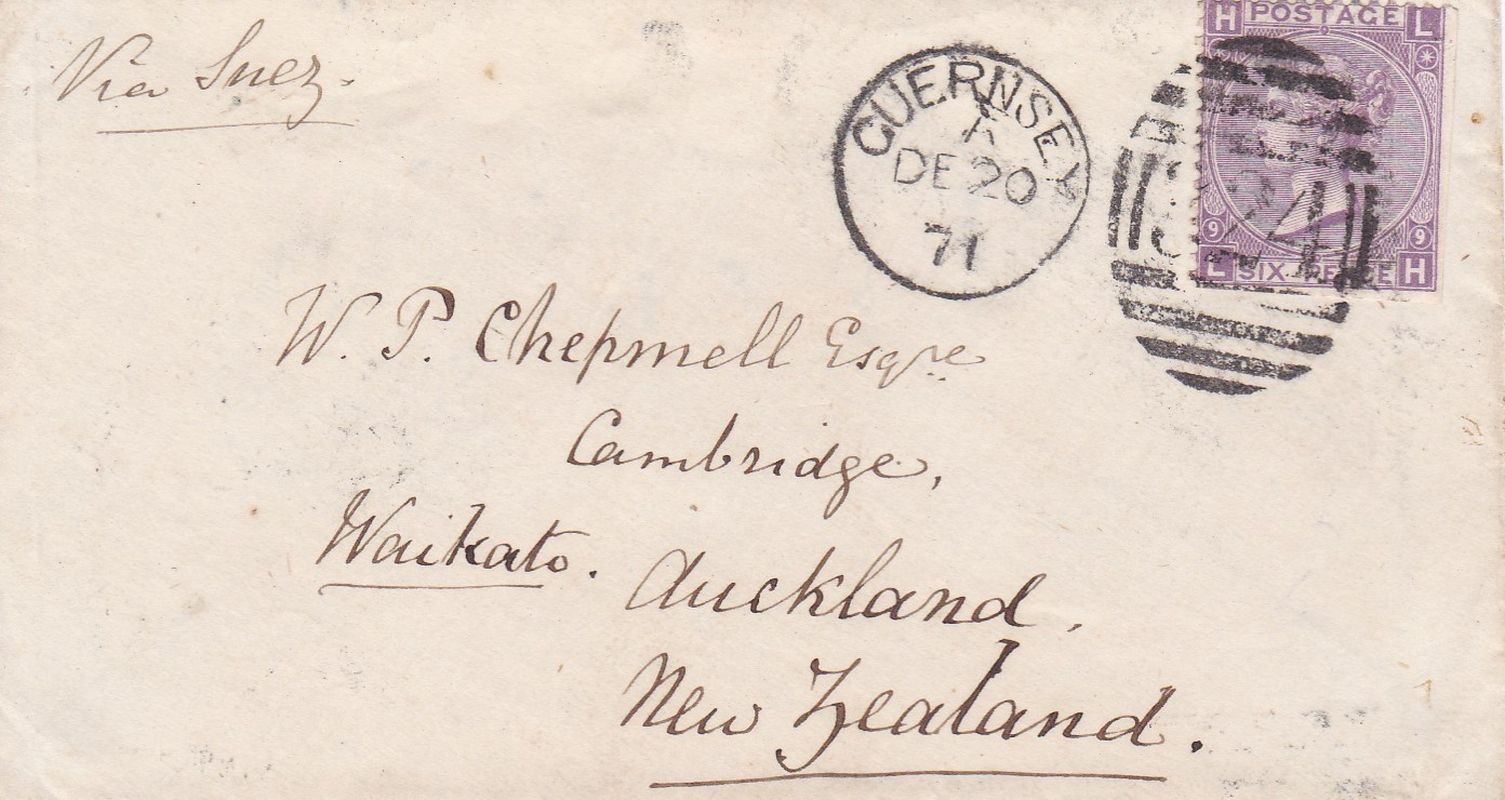 Via Suez.
GUERNSEY
A
DE 20
71
H POSTAGE L
9 9
L SIX PENCE H
324
W. P. Chepmell Esqre
Cambridge,
Waikato.
Auckland,
New Zealand.